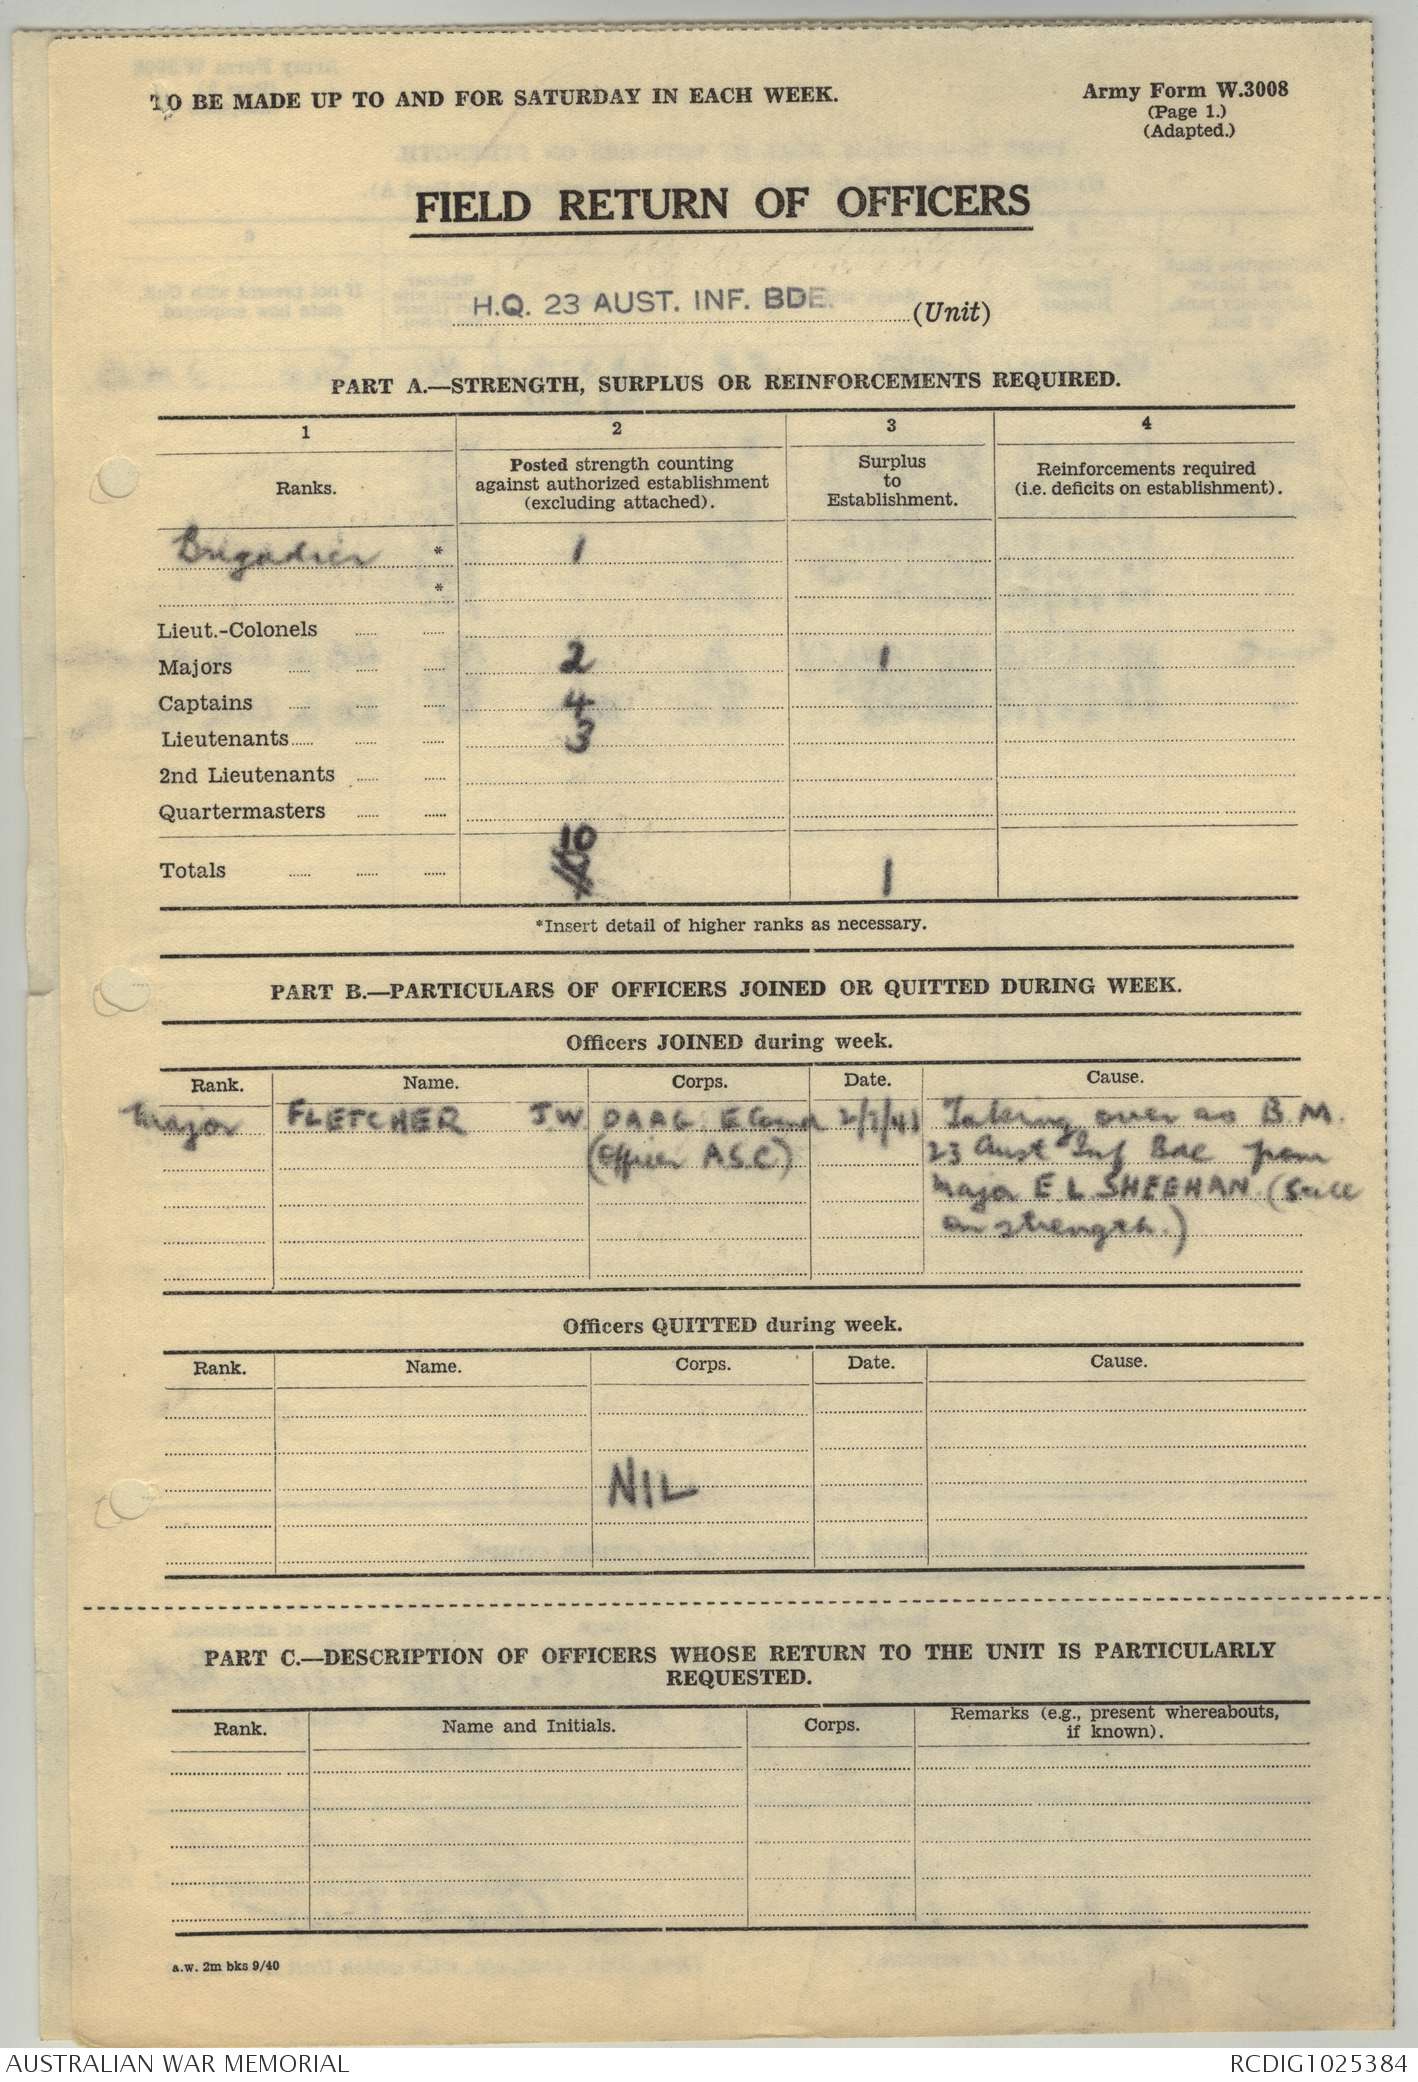 TO BE MADE UP TO AND FOR SATURDAY IN EACH WEEK.
Army Form W.3008
(Page 1.)
(Adapted.)
FIELD RETURN OF OFFICERS
H.Q. 23 AUST. INF. BDE. (Unit)
PART A.—STRENGTH, SURPLUS OR REINFORCEMENTS REQUIRED.
1 2 3 4
Ranks. Posted strength counting against authorized establishment (excluding attached). Surplus to Establishment. Reinforcements required (i.e. deficits on establishment).
Brigadier * 1
*
Lieut.-Colonels
Majors 2 1
Captains 4
Lieutenants 3
2nd Lieutenants
Quartermasters
10
Totals 1
*Insert detail of higher ranks as necessary.
PART B.—PARTICULARS OF OFFICERS JOINED OR QUITTED DURING WEEK.
Officers JOINED during week.
Rank. Name. Corps. Date. Cause.
Major FLETCHER J.W. DAAG E Comd 2/7/41 Taking over as B.M.
(Officer A.S.C) 23 Aust Inf Bde from
Major E L SHEEHAN (Still
on strength.)
Officers QUITTED during week.
Rank. Name. Corps. Date. Cause.
NIL
PART C.—DESCRIPTION OF OFFICERS WHOSE RETURN TO THE UNIT IS PARTICULARLY
REQUESTED.
Rank. Name and Initials. Corps. Remarks (e.g., present whereabouts, if known).
a.w. 2m bks 9/40
AUSTRALIAN WAR MEMORIAL
RCDIG1025384